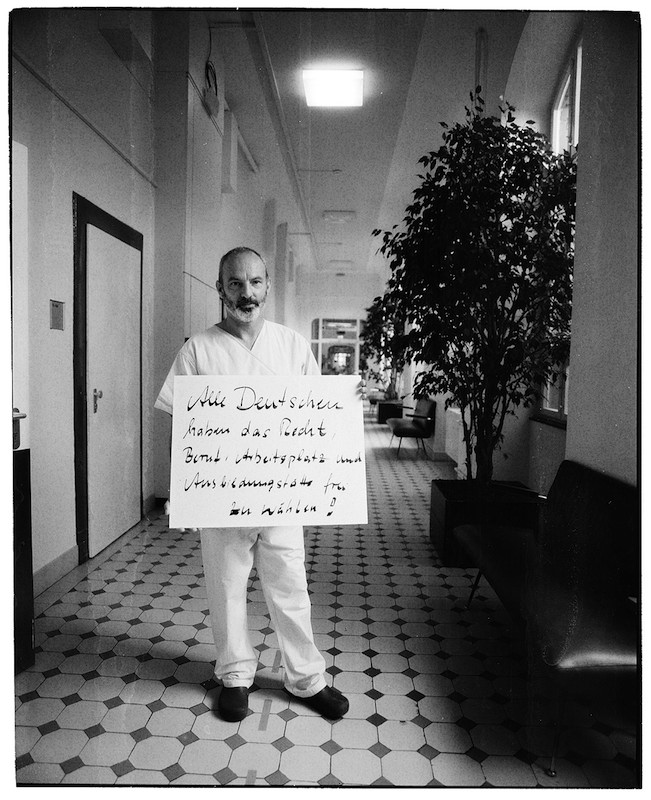 Alle Deutschen
haben das Recht,
Beruf, Arbeitsplatz und
Ausbildungsstätte frei
zu wählen!